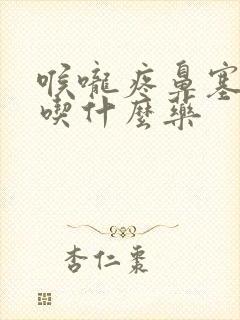 喉嚨疼鼻塞
喫什麼藥
杏仁棗